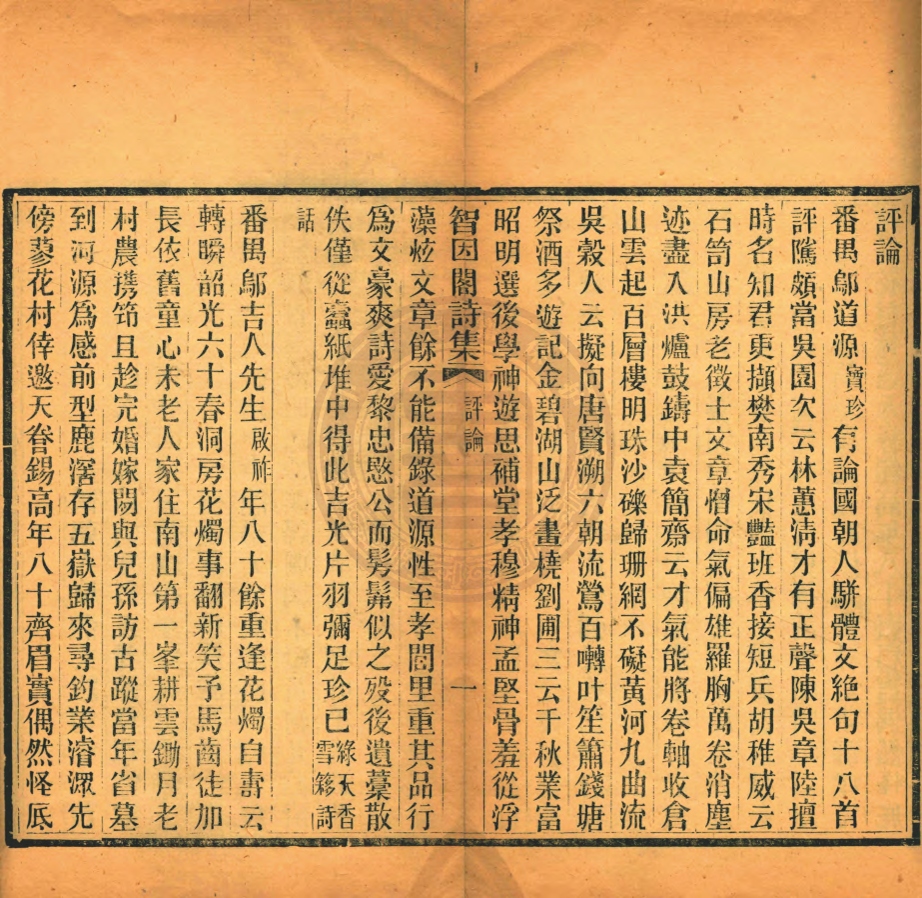 評論
番禺鄔道源寶珍有論國朝人駢體文絕句十八首
評隲頗當吳園次云林蕙淸才有正聲陳吳章陸擅
時名知君更擷樊南秀宋豔班香接短兵胡稚威云
石笥山房老徵士文章憎命氣偏雄羅胸萬卷消塵
迹盡入洪爐鼓鑄中袁簡齋云才氣能將卷軸收倉
山雲起百層樓明珠沙礫歸珊網不礙黃河九曲流
吳穀人云擬向唐賢溯六朝流鶯百囀叶笙簫錢塘
祭酒多遊記金碧湖山泛畫橈劉圃三云千秋業富
昭明選後學神遊思補堂孝穆精神孟堅骨羞從浮
智因閣詩集 評論 一
藻炫文章餘不能備錄道源性至孝閭里重其品行
爲文豪爽詩愛黎忠愍公而髣髴似之歿後遺藁散
佚僅從蠹紙堆中得此吉光片羽彌足珍已綠天香雪簃詩
話
番禺鄔吉人先生啟祚年八十餘重逢花燭自書云
轉瞬韶光六十春洞房花燭事翻新笑予馬齒徒加
長依舊童心未老人家住南山第一峯耕雲鋤月老
村農携筇且趁完婚嫁閒與兒孫訪古蹤當年省墓
到河源爲感前型鹿洞存五嶽歸來尋釣業濬溪先
傍蓼花村倖邀天眷錫高年八十齊眉實偶然怪底